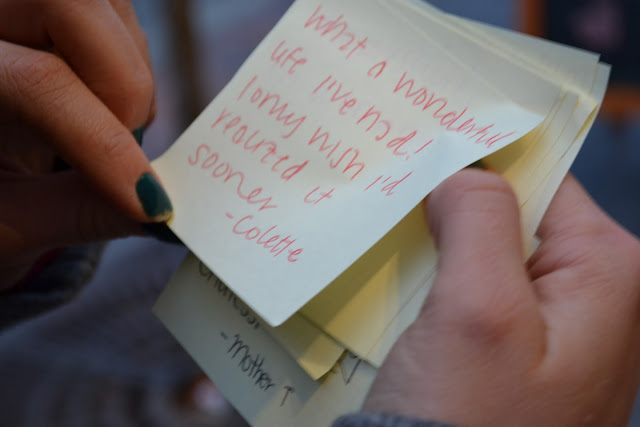 What a wonderful
life I've had!
I only wish I'd
realized it
sooner
-Colette
-Mother T